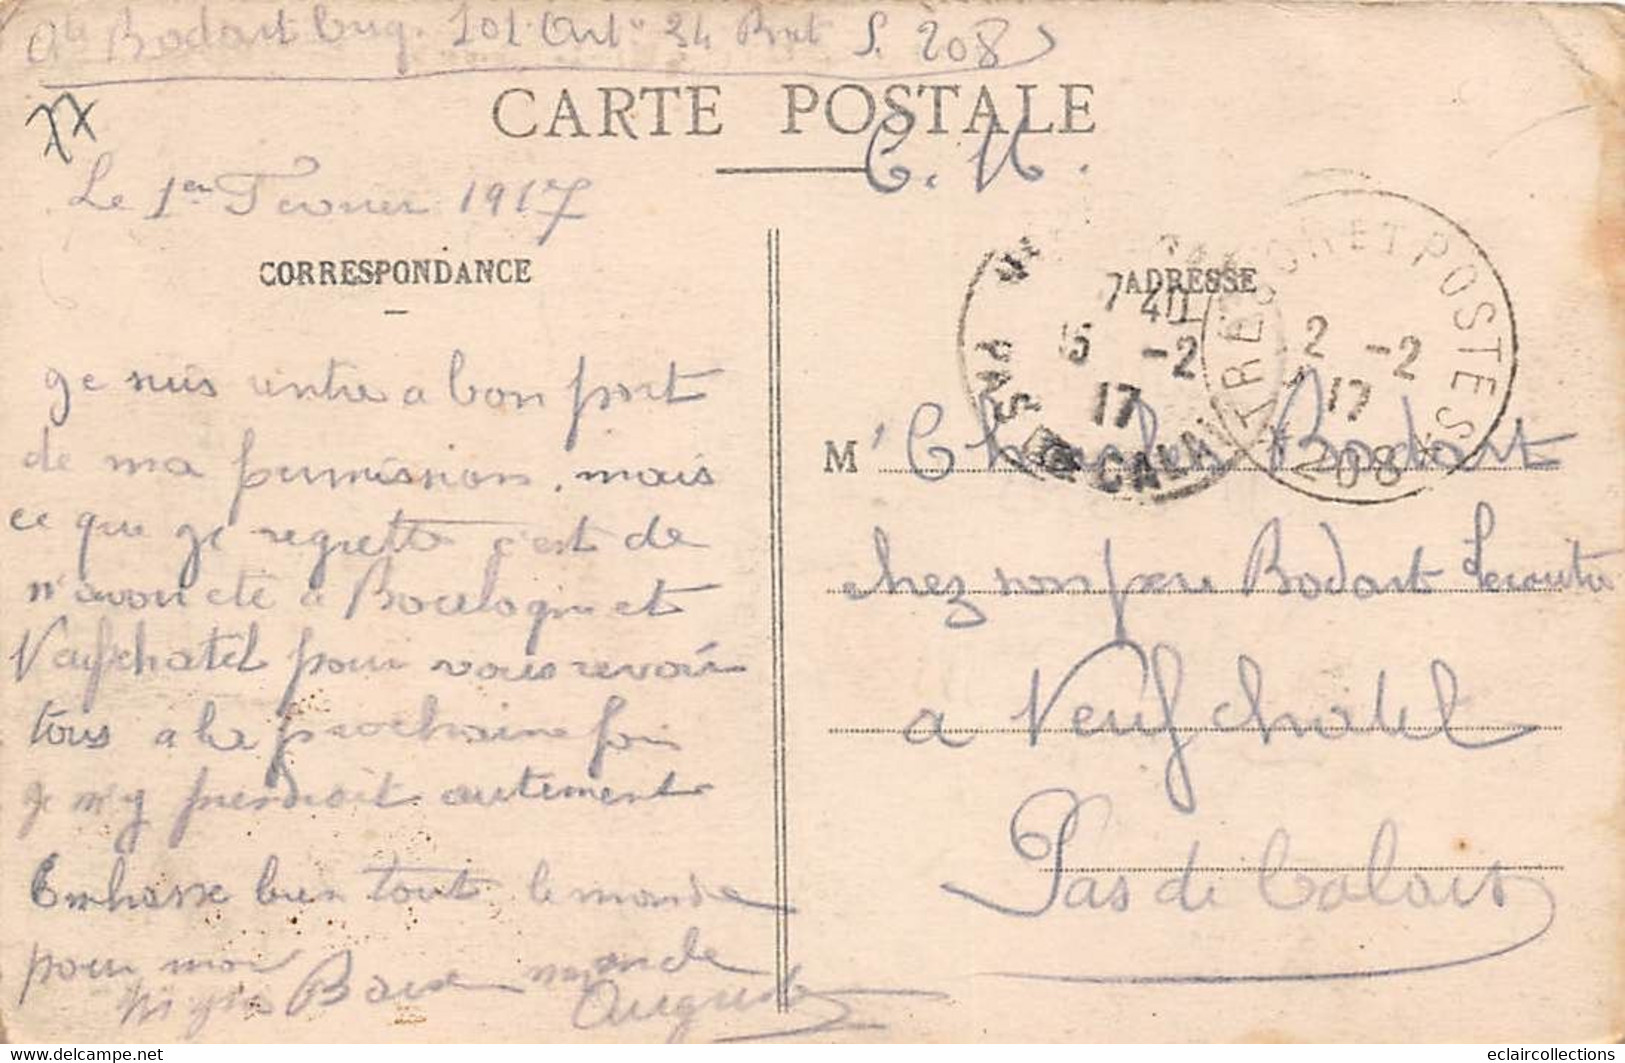 Bodart Aug. 101 Art 34 S. 208
CARTE POSTALE
C. M.
Le 1er Fevrier 1917
CORRESPONDANCE
ADRESSE
7 40
15 -2
17
PAS DE CALAIS
TRESOR ET POSTES
2 -2
17
208
Je suis rentre a bon port
de ma permission, mais
ce que je regrette c'est de
n'avoir ete a Boulogne et
Neufchatel pour vous revoir
tous a la prochaine fois
je m'y prendrait autrement
Embrasse bien tout le monde
pour moi
Auguste
M' Charles Bodart
chez son pere Bodart Lecoutre
a Neufchatel
Pas de Calais
www.delcampe.net
eclaircollections